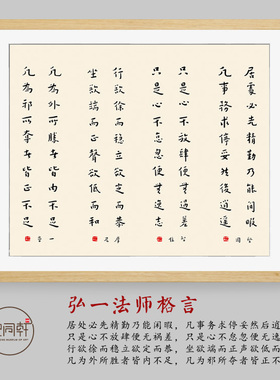 居處必先精勤乃能閒暇
凡事務求停妥然後逍遥
只是心不放肆便無過差
只是心不怠忽便無逸志
行欲徐而稳立欲定而恭
坐欲端而正聲欲低而和
凡為外所勝者皆内不足
凡為邪所奪者皆正不足
弘一法师格言
居处必先精勤乃能闲暇，凡事务求停妥然后逍遥
只是心不放肆便无祸差，只是心不怠忽便无逸
行欲徐而稳立欲定而恭，坐欲端而正声欲低而
凡为外所胜者皆内不足，凡为邪所夺者皆正不